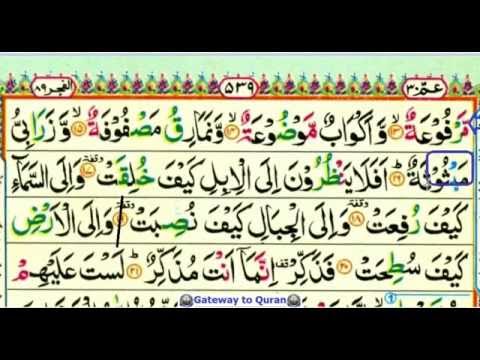 عمّ ٣٠ ٥٣٩ الفجر ٨٩
مَّرْفُوْعَةٌ ﴿١٣﴾ وَّاَكْوَابٌ مَّوْضُوْعَةٌ ﴿١٤﴾ وَّنَمَارِقُ مَصْفُوْفَةٌ ﴿١٥﴾ وَّزَرَابِيُّ
مَبْثُوْثَةٌ ﴿١٦﴾ اَفَلَا يَنْظُرُوْنَ اِلَى الْاِبِلِ كَيْفَ خُلِقَتْ ﴿١٧﴾ وَاِلَى السَّمَآءِ
كَيْفَ رُفِعَتْ ﴿١٨﴾ وَاِلَى الْجِبَالِ كَيْفَ نُصِبَتْ ﴿١٩﴾ وَاِلَى الْاَرْضِ
كَيْفَ سُطِحَتْ ﴿٢٠﴾ فَذَكِّرْ اِنَّمَاۤ اَنْتَ مُذَكِّرٌ ﴿٢١﴾ لَسْتَ عَلَيْهِمْ
Gateway to Quran